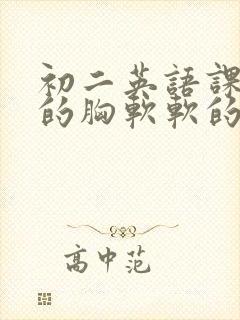 初二英語課
的胸軟軟的
高中范